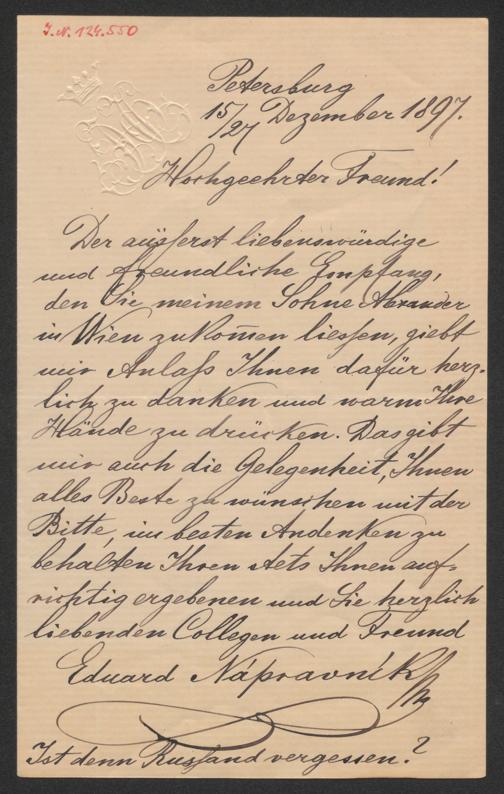 J.N. 124.550
Petersburg
15/27 Dezember 1897.
Hochgeehrter Freund!
Der äüsserst liebenswürdige
und freundliche Empfang,
den Sie meinem Sohne Alexander
in Wien zukom̅en liessen, giebt
mir Anlaſs Ihnen dafür herz-
lich zu danken und warm Ihre
Hände zu drücken. Das gibt
mir auch die Gelegenheit, Ihnen
alles Beste zu wünschen mit der
Bitte, im besten Andenken zu
behalten Ihren stets Ihnen auf-
richtig ergebenen und Sie herzlich
liebenden Collegen und Freund
Eduard Nápravník
Ist denn Russland vergessen?